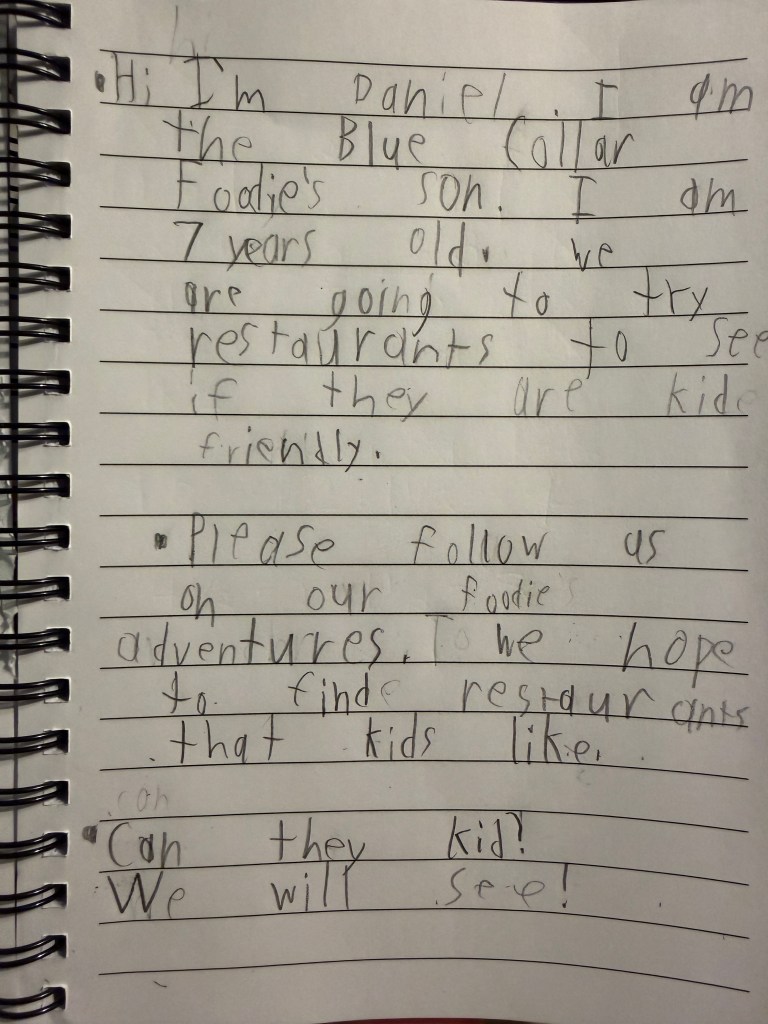 • Hi I'm Daniel. I am
the Blue Collar
Foodie's son. I am
7 years old. we
are going to try
restaurants to see
if they are kid
friendly.
• Please follow us
on our foodie's
adventures. we hope
to find restaurants
that kids like.
can
• Can they kid?
We will see!